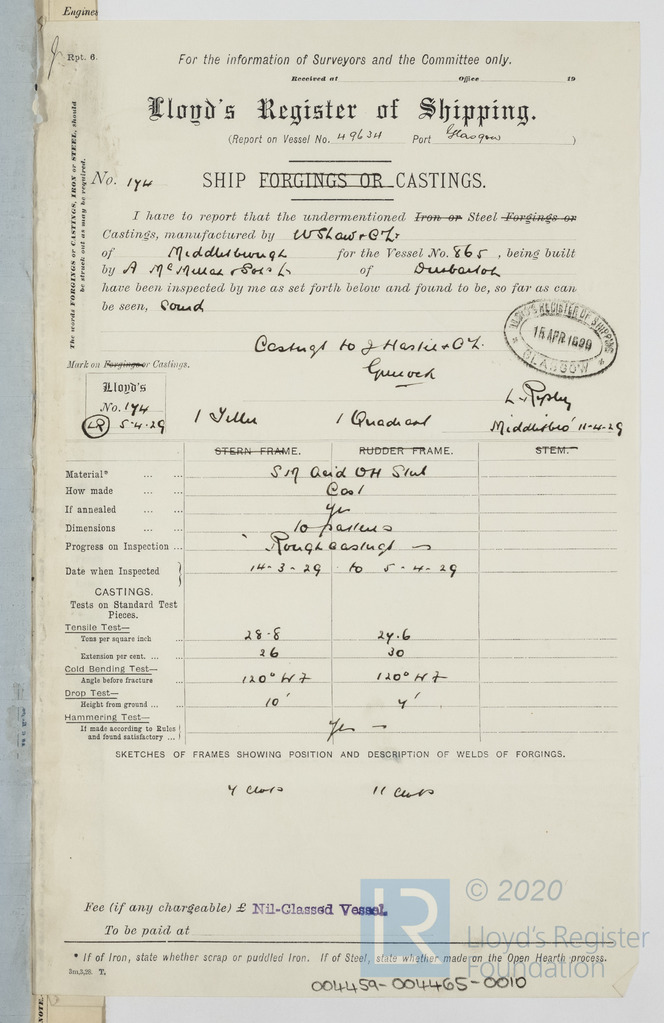 Engines
Rpt. 6.
For the information of Surveyors and the Committee only.
Received at Office 19
Lloyd's Register of Shipping.
(Report on Vessel No. 49634 Port Glasgow)
The words FORGINGS or CASTINGS, IRON or STEEL, should
be struck out as may be required.
No. 174 SHIP FORGINGS OR CASTINGS.
I have to report that the undermentioned Iron or Steel Forgings or
Castings, manufactured by W Shaw & Co Ld
of Middlesbrough for the Vessel No. 865, being built
by A McMillan & Sons Ld of Dumbarton
have been inspected by me as set forth below and found to be, so far as can
be seen, Sound
LLOYD'S REGISTER OF SHIPPING
GLASGOW
Castings to J Hastie & Co Ld.
Greenock
Mark on Forgings or Castings.
Lloyd's
No. 174
LR 5-4-29
1 Tiller 1 Quadrant
Middlesbro' 11-4-29
STERN FRAME. RUDDER FRAME. STEM.
Material* ... ... S M Acid OH Steel
How made ... ... Cast
If annealed ... ... Yes
Dimensions ... ... to patterns
Progress on Inspection ... Rough castings
Date when Inspected 14-3-29 to 5-4-29
CASTINGS.
Tests on Standard Test
Pieces.
Tensile Test—
Tons per square inch ... 28.8 27.6
Extension per cent. ... ... 26 30
Cold Bending Test—
Angle before fracture ... 120°
Drop Test—
Height from ground ... ... 10' 7'
Hammering Test—
If made according to Rules
and found satisfactory ... Yes
SKETCHES OF FRAMES SHOWING POSITION AND DESCRIPTION OF WELDS OF FORGINGS.
7 cwts 11 cwts
Fee (if any chargeable) £ Nil-Classed Vessel.
To be paid at
* If of Iron, state whether scrap or puddled Iron. If of Steel, state whether made on the Open Hearth process.
3m,3,28. T.
© 2020
Lloyd's Register
Foundation
004459-004465-0010
NOTE.